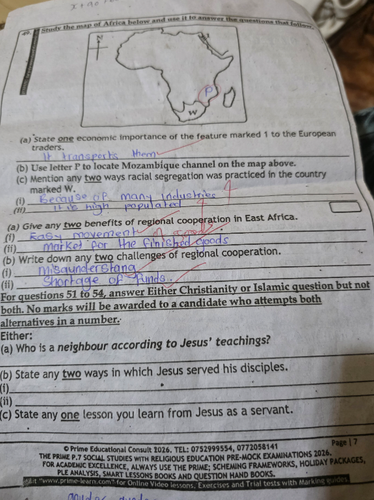 49. Study the map of Africa below and use it to answer the questions that follow.
N
1
P
W
(a) State one economic importance of the feature marked 1 to the European
traders.
It transports them
(b) Use letter P to locate Mozambique channel on the map above.
(c) Mention any two ways racial segregation was practiced in the country
marked W.
(i) Because of many industries
(ii) It is high populated
(a) Give any two benefits of regional cooperation in East Africa.
(i) Easy movement
(ii) market for the finished goods
(b) Write down any two challenges of regional cooperation.
(i) misunderstang
(ii) Shortage of funds
For questions 51 to 54, answer Either Christianity or Islamic question but not
both. No marks will be awarded to a candidate who attempts both
alternatives in a number.
Either:
(a) Who is a neighbour according to Jesus' teachings?
(b) State any two ways in which Jesus served his disciples.
(i)
(ii)
(c) State any one lesson you learn from Jesus as a servant.
Page | 7
© Prime Educational Consult 2026. TEL: 0752999554, 0772058141
THE PRIME P.7 SOCIAL STUDIES WITH RELIGIOUS EDUCATION PRE-MOCK EXAMINATIONS 2026.
FOR ACADEMIC EXCELLENCE, ALWAYS USE THE PRIME; SCHEMING FRAMEWORKS, HOLIDAY PACKAGES,
PLE ANALYSIS, SMART LESSONS BOOKS AND QUESTION HAND BOOKS.
"www.prime-learn.com" for Online Video lessons, Exercises and Trial tests with Marking guides